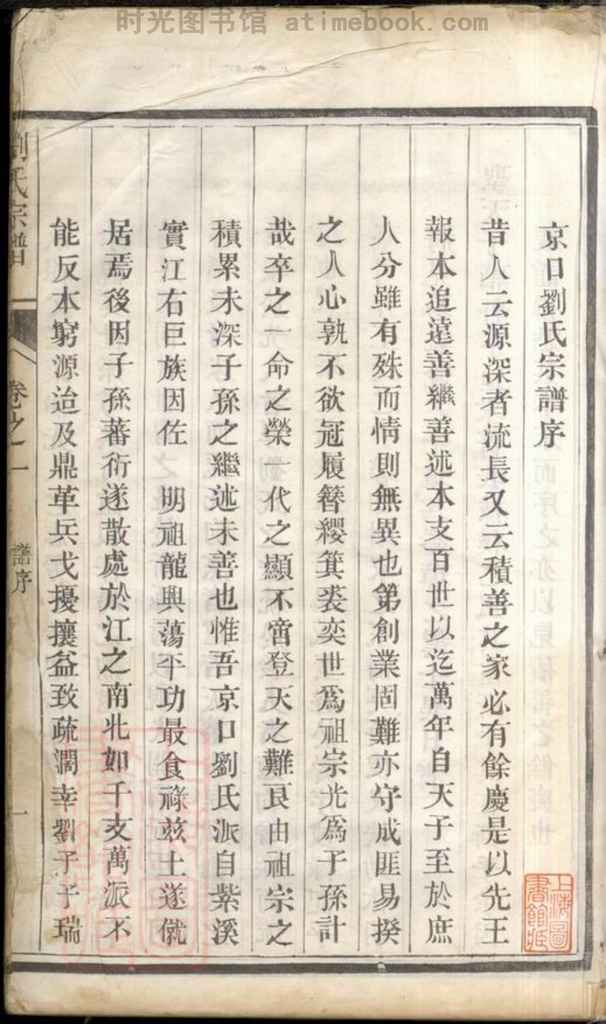 时光图书馆 atimebook.com
京口劉氏宗譜序
昔人云源深者流長又云積善之家必有餘慶是以先王
報本追遠善繼善述本支百世以迄萬年自天子至於庶
人分雖有殊而情則無異也第創業固難亦守成匪易揆
之人心孰不欲冠履簪纓箕裘奕世爲祖宗光爲子孫計
哉卒之一命之榮一代之顯不啻登天之難良由祖宗之
積累未深子孫之繼述未善也惟吾京口劉氏派自紫溪
實江右巨族因佐 明祖龍興蕩平功最食祿兹土遂僦
居焉後因子孫蕃衍遂散處於江之南北如千支萬派不
能反本窮源迨及鼎革兵戈擾攘益致疏濶幸劉子予瑞
劉氏宗譜
卷之一
譜序
一
上海圖書館藏